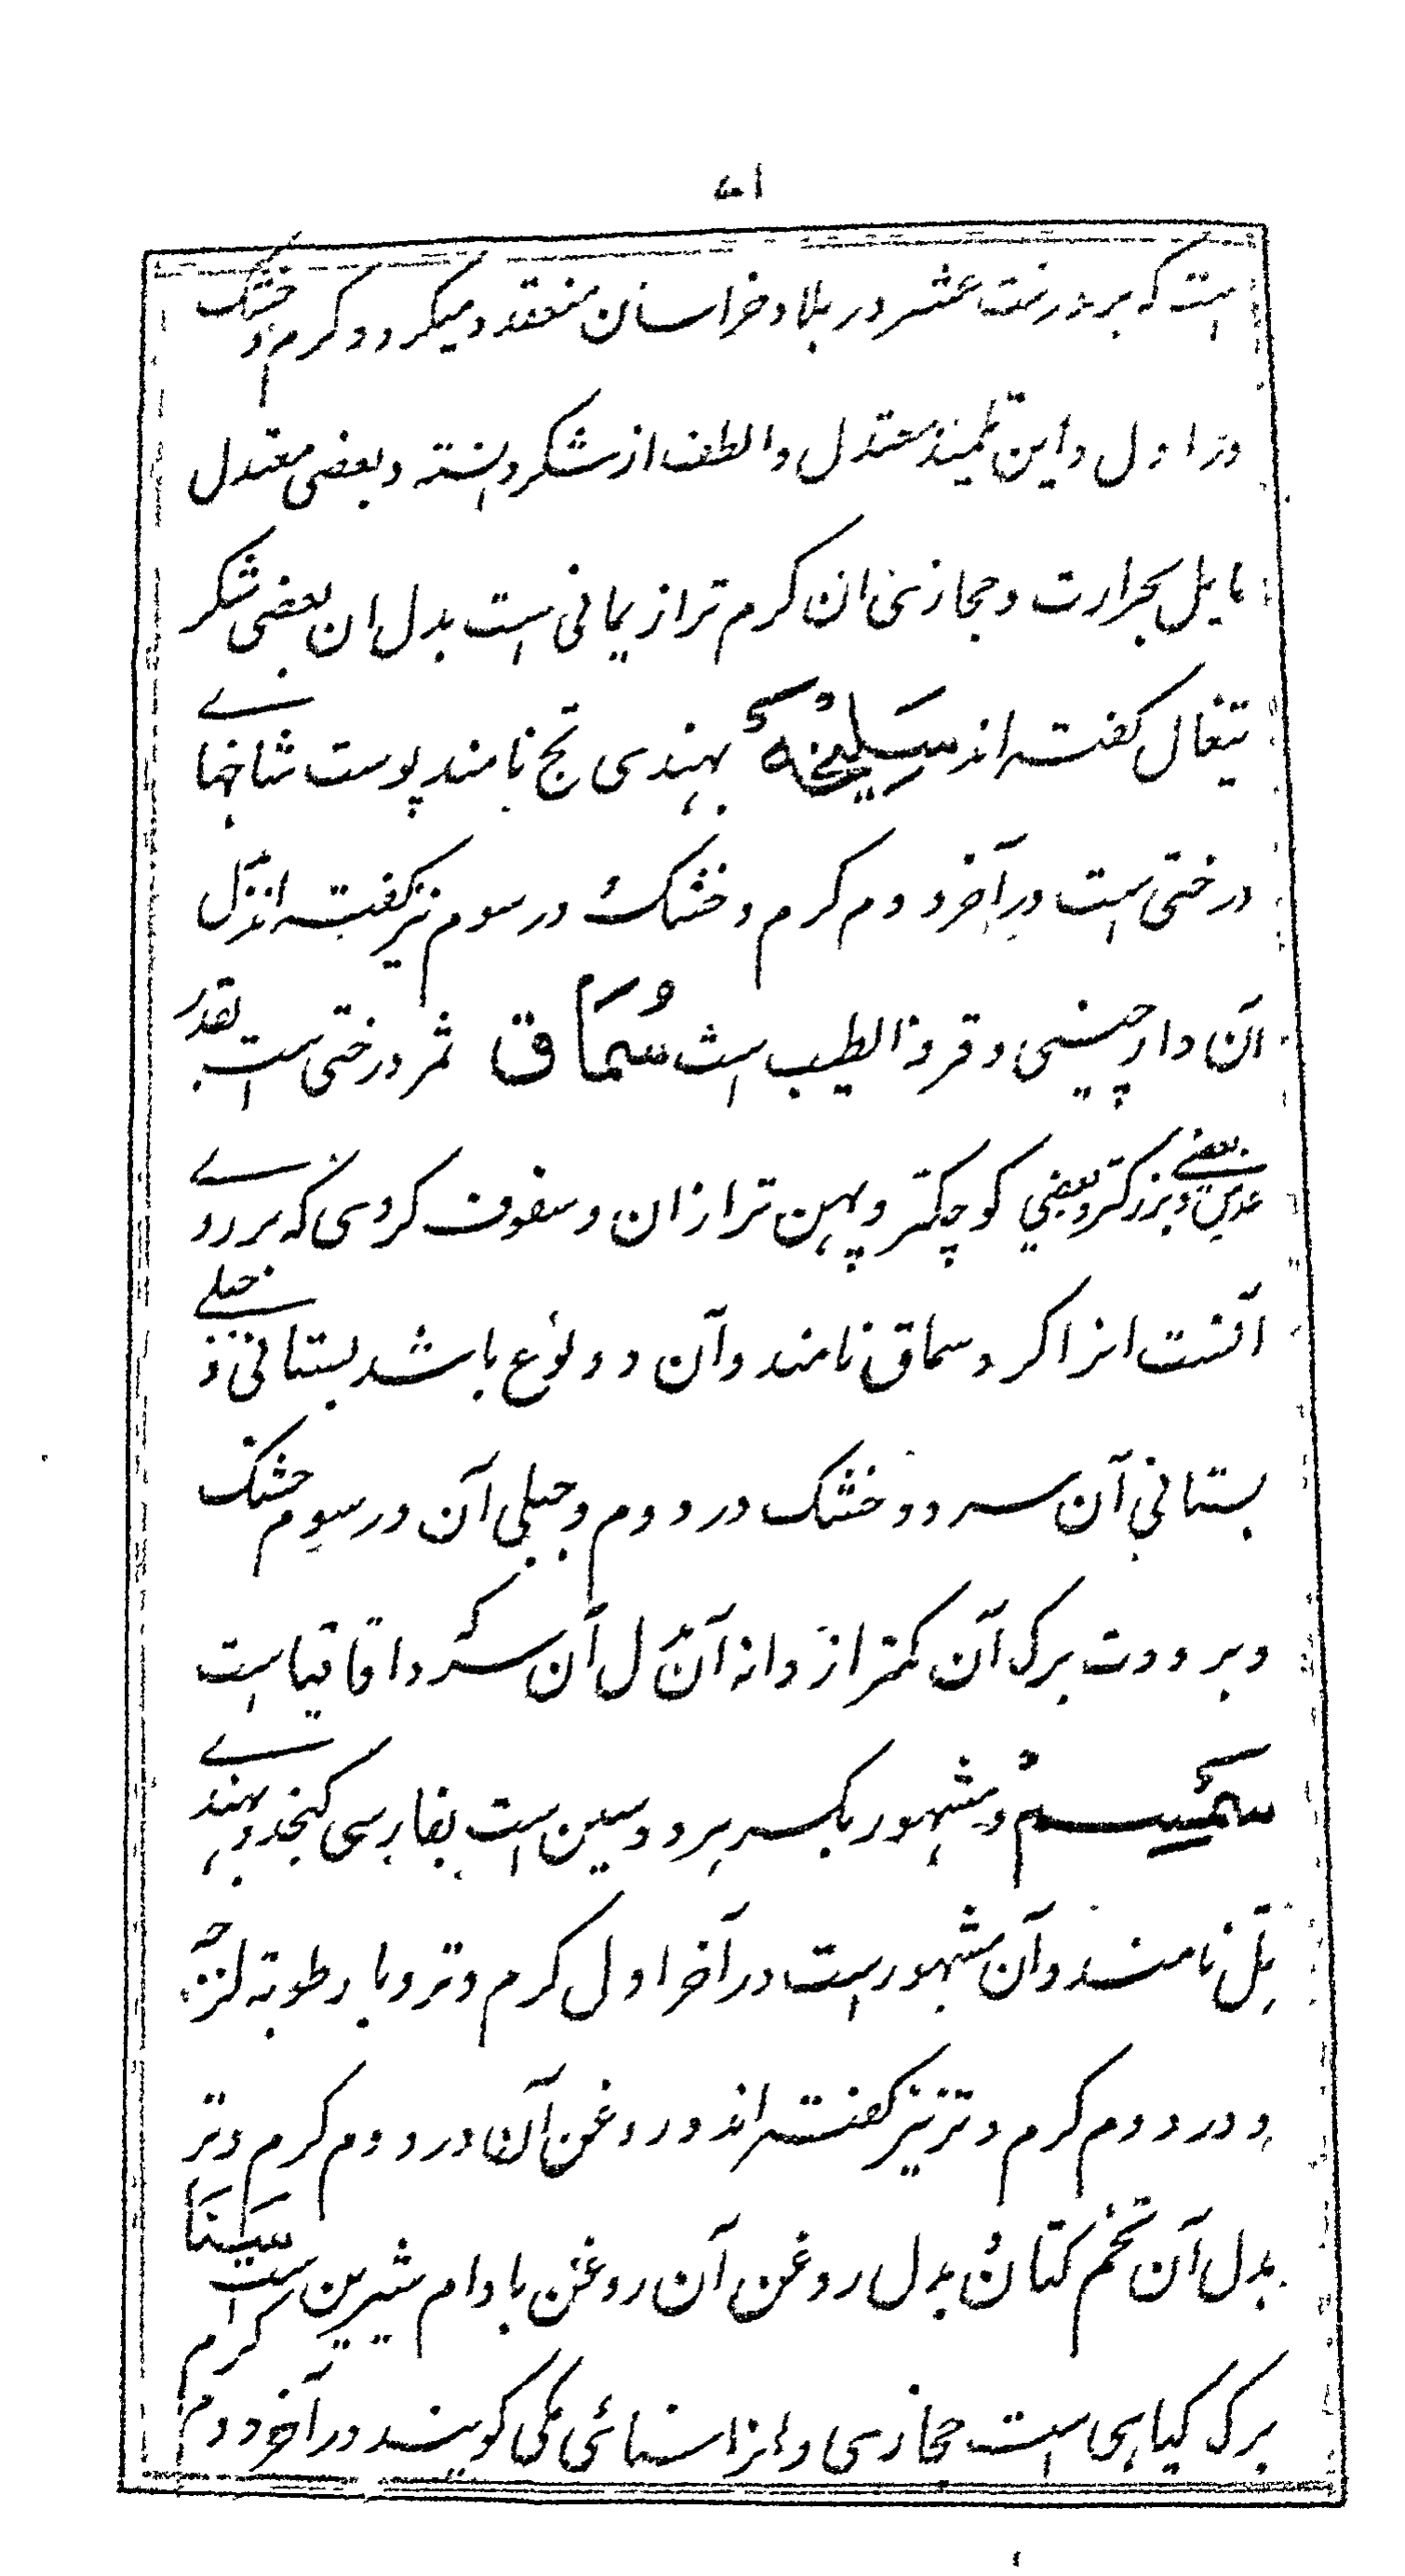 است که بر درخت عشر در بلاد خراسان منعقد میگردد و کرم و خشک
در اول و این تلمیذ معتدل و الطف از شکر دانسته و بعضی معتدل
مایل بحرارت و حجازی ان کرم تر از یمانی است بدل ان بعضی شکر
تیغال کفته اند سَلِیْخَهْ بهندی تج نامند پوست شاخهاے
درختی است در آخر دوم کرم و خشک در سوم نیز کفته اند بدل
آن دارچینی و قرفة الطیب است سُمَاق ثمر درختی است بقدر
عدس و بعضے بزرکتر و بعضی کوچکتر و پهن تر ازان و سفوف کردی که بر روے
آنست انرا کرد سماق نامند و آن دو نوع باشد بستانی و جبلے
بستانی آن سرد و خشک در دوم و جبلی آن در سوم خشک
و برودت برک آن کمتر از دانه آن بدل آن سرکه و اقاقیا است
سِمْسِمْ و مشهور بکسر هر دو سین است بفارسی کنجد و بهندے
تِل نامند و آن مشهور است در آخر اول کرم و تر و با رطوبة لزجه
و در دوم کرم و تر نیز کفته اند و روغن آن در دوم کرم و تر
بدل آن تخم کتان بدل روغن آن روغن بادام شیرین است سَنَا
برک کیاهی است حجازی و انرا سنائی مکی کویند در آخر دوم کرم